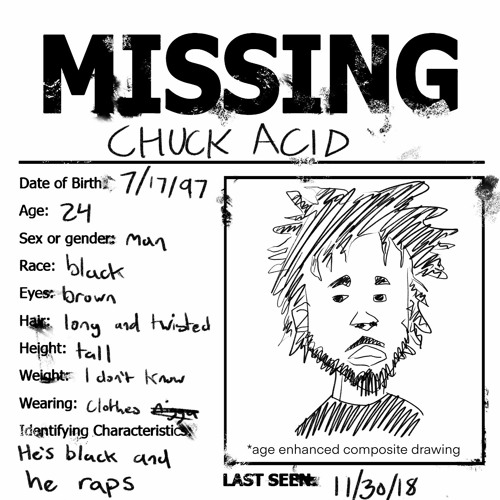 MISSING
CHUCK ACID
Date of Birth: 7/17/97
Age: 24
Sex or gender: man
Race: black
Eyes: brown
Hair: long and twisted
Height: tall
Weight: I don't know
Wearing: clothes
Identifying Characteristics:
He's black and
he raps
*age enhanced composite drawing
LAST SEEN: 11/30/18